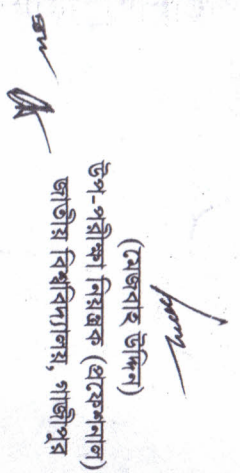 (মেজবাহ উদ্দিন)
উপ-পরীক্ষা নিয়ন্ত্রক (প্রফেশনাল)
জাতীয় বিশ্ববিদ্যালয়, গাজীপুর